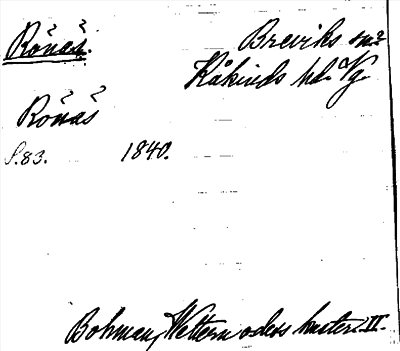 Rönäs.
Breviks sn?
Kåkinds hd. Vg.
Rönäs
S.83. 1840.
Bohman, Wettern o dess kuster. II.